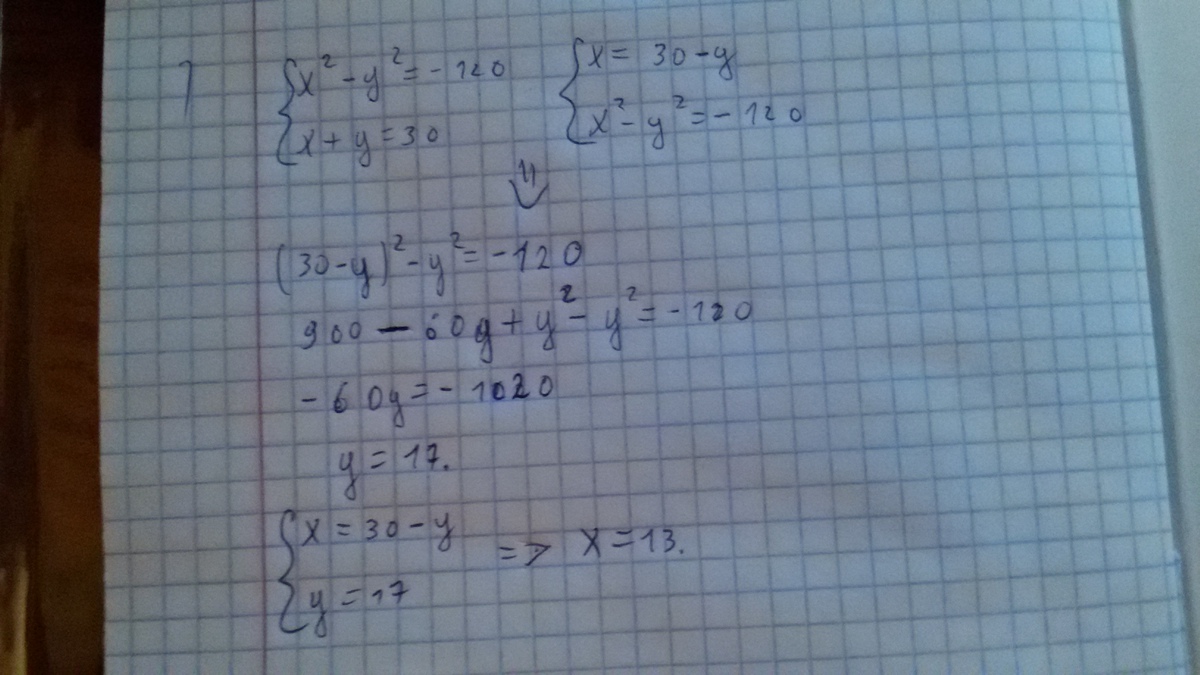 1
x² - y² = -120
x + y = 30
x = 30 - y
x² - y² = -120
⇓
(30 - y)² - y² = -120
900 - 60y + y² - y² = -120
-60y = -1020
y = 17.
x = 30 - y
y = 17
=> x = 13.